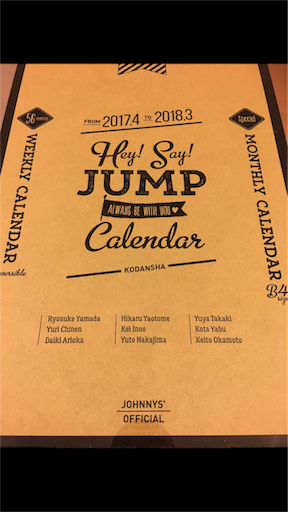 FROM 2017.4 TO 2018.3
56
WEEKLY CALENDAR
Special
MONTHLY CALENDAR
B4
Hey! Say!
JUMP
ALWAYS BE WITH YOU
Calendar
KODANSHA
Ryosuke Yamada
Yuri Chinen
Daiki Arioka
Hikaru Yaotome
Kei Inoo
Yuto Nakajima
Yuya Takaki
Kota Yabu
Keito Okamoto
JOHNNYS'
OFFICIAL